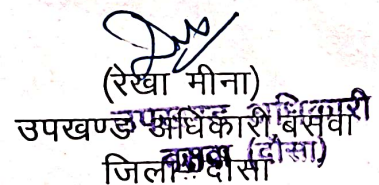 (रेखा मीना)
उपखण्ड अधिकारी, बसवा
जिला दौसा
उपखण्ड अधिकारी
बसवा (दौसा)